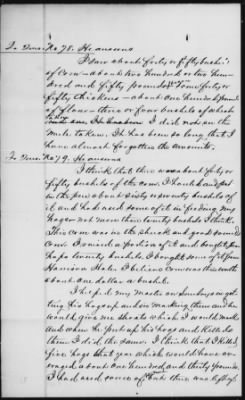 To Inter. No 78. He answers
I saw about forty or fifty bush's
of corn - about two hundred or two hun-
dred and fifty pounds of some forty or
fifty chickens - about one hundred pounds
of flour - three or four bushels of which
I did not see the
mule taken. It has been so long that I
have almost forgotten the amounts.
To Inter. No 79. He answers
I think there was about forty or
fifty bushels of the corn, I should
in the pen about sixty or seventy bushels of
it and he had some of it in feeding my
hogs not more than twenty bushels I think.
This corn was in the shuck and good sound
corn. I raised a portion of it and bought per-
haps twenty bushels. I bought some of it from
Harrison Hale. I believe corn was then worth
about one dollar a bushel.
I helped my master on Sundays in get-
ting his hogs up and in marking them and he
would give me shoats which I would mark
and when he put up his hogs and killed
them I did the same. I think that I killed
five hogs that year which would have av-
eraged about one hundred and thirty pounds.
I had used some of but there was left of